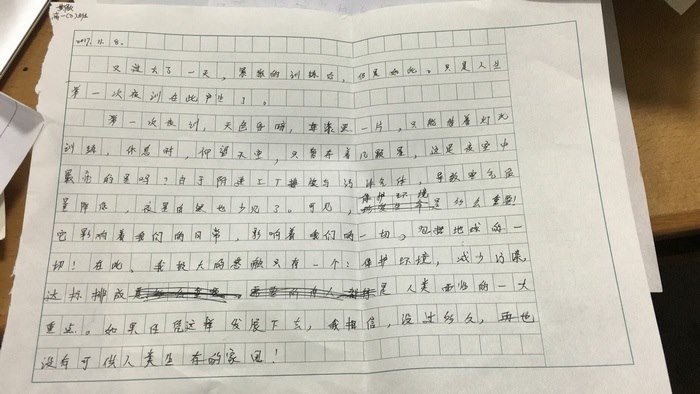 高一(2)班
2017.11.8.
又过去了一天，紧散的训练后，仍是如此。只是人生
第一次夜训在此产生了。
第一次夜训，天色昏暗，漆黑一片，只能借着灯光
训练，休息时，仰望天空，只留存着几颗星，这是夜空中
最亮的星吗？由于附近工厂排放污染气体，导致空气质
量降低，夜星自然也少见了。可见，保护环境是多么重要！
它影响着我们的日常，影响着我们的一切，包括地球的一
切！在此，我极大的感触只有一个：保护环境，减少污染，
达标排放是人类面临的一大
重点。如果任凭这样发展下去，我相信，没过多久，再也
没有可供人类生存的家园！